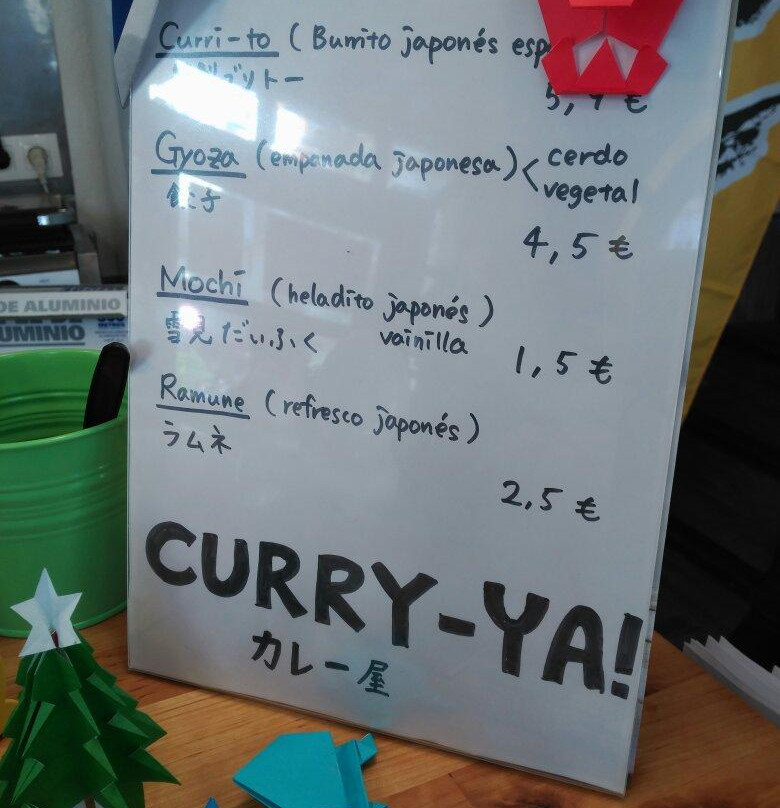 Curri-to (Burrito japonés esp
ブリトー
Gyoza (empanada japonesa) < cerdo
vegetal
餃子
4,5 €
Mochi (heladito japonés)
雪見だいふく vainilla
1,5 €
Ramune (refresco japonés)
ラムネ
2,5 €
CURRY-YA!
カレー屋
DE ALUMINIO
UMINIO